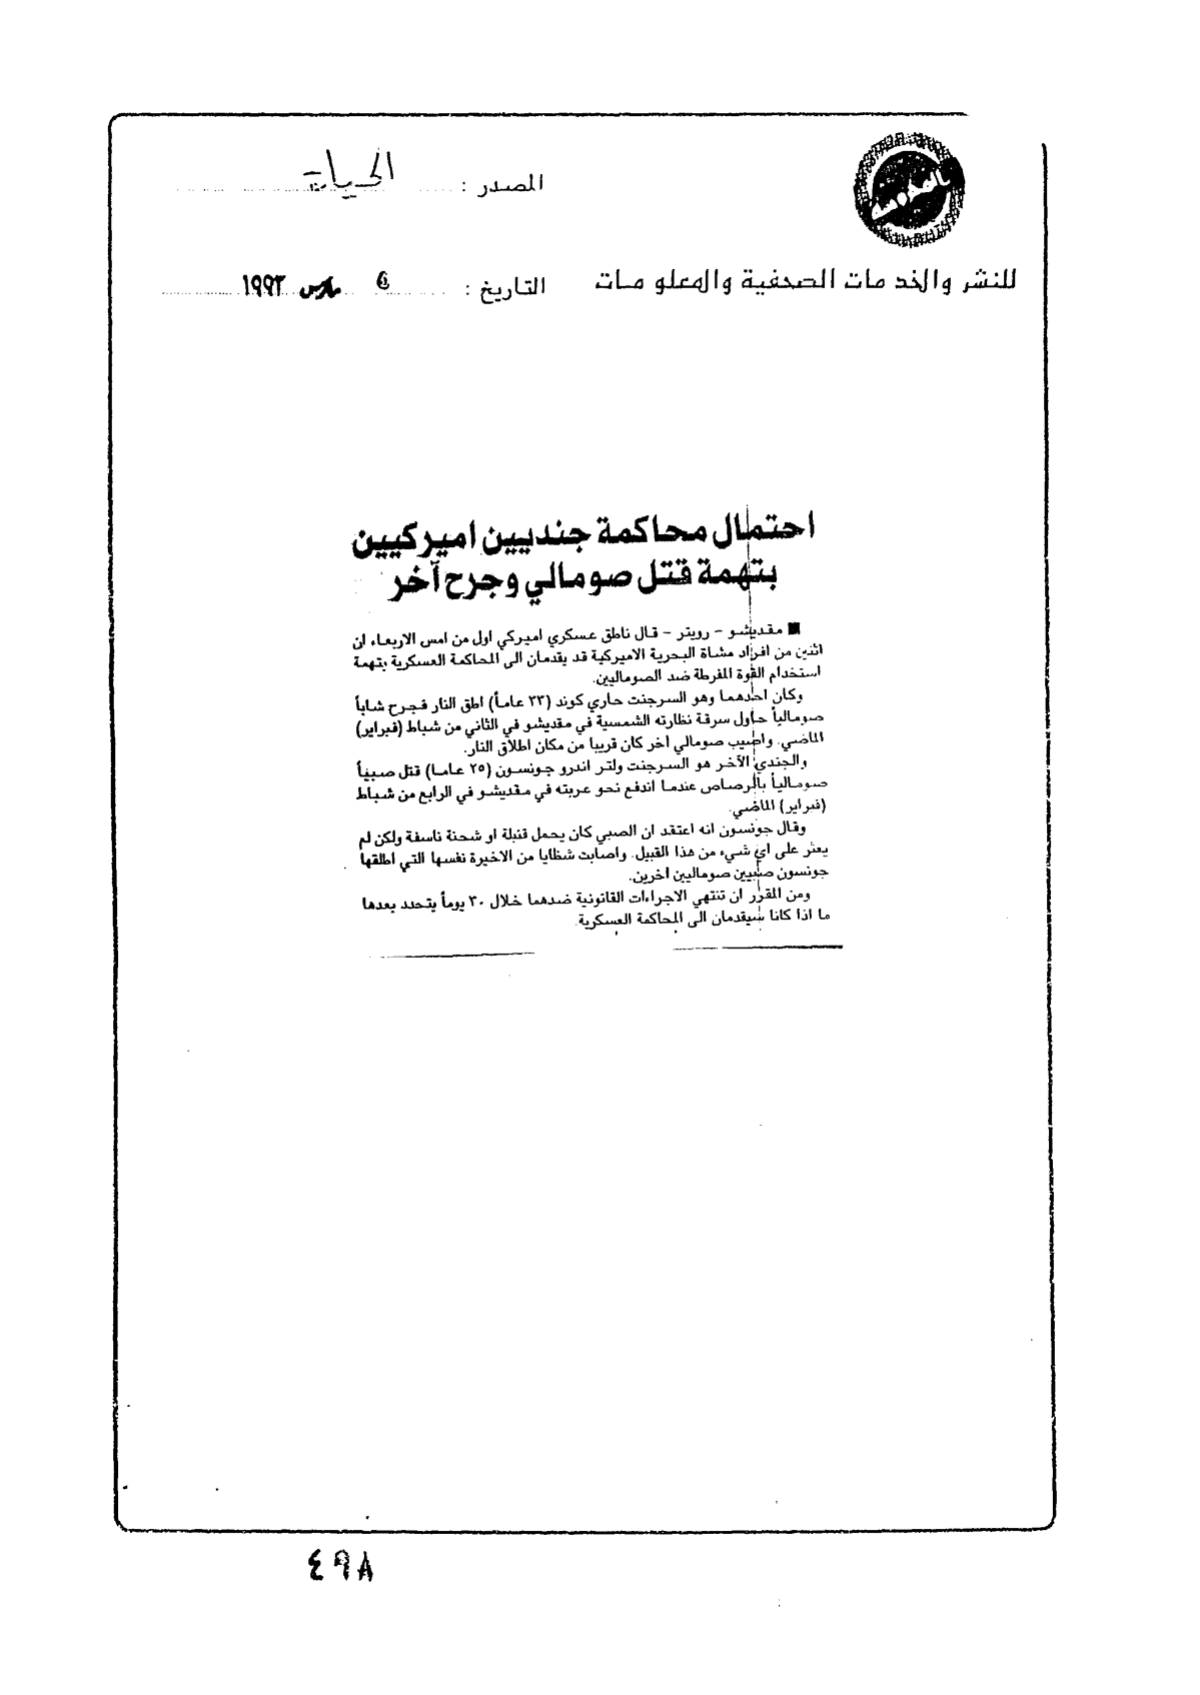 المصدر : الحياة
للنشر والخدمات الصحفية والمعلومات
التاريخ : مارس ١٩٩٣
احتمال محاكمة جنديين اميركيين
بتهمة قتل صومالي وجرح آخر
■ مقديشو - رويتر - قال ناطق عسكري اميركي اول من امس الاربعاء ان
اثنين من افراد مشاة البحرية الاميركية قد يقدمان الى المحاكمة العسكرية بتهمة
استخدام القوة المفرطة ضد الصوماليين.
وكان احدهما وهو السرجنت حاري كوند (٣٣ عاماً) اطق النار فجرح شاباً
صومالياً حاول سرقة نظارته الشمسية في مقديشو في الثاني من شباط (فبراير)
الماضي. واصيب صومالي آخر كان قريبا من مكان اطلاق النار.
والجندي الآخر هو السرجنت ولتر اندرو جونسون (٢٥ عاما) قتل صبياً
صومالياً بالرصاص عندما اندفع نحو عربته في مقديشو في الرابع من شباط
(فبراير) الماضي.
وقال جونسون انه اعتقد ان الصبي كان يحمل قنبلة او شحنة ناسفة ولكن لم
يعثر على اي شيء من هذا القبيل. واصابت شظايا من الاخيرة نفسها التي اطلقها
جونسون صبيين صوماليين آخرين.
ومن المقرر ان تنتهي الاجراءات القانونية ضدهما خلال ٣٠ يوماً يتحدد بعدها
ما اذا كانا سيقدمان الى المحاكمة العسكرية.
٤٩٨